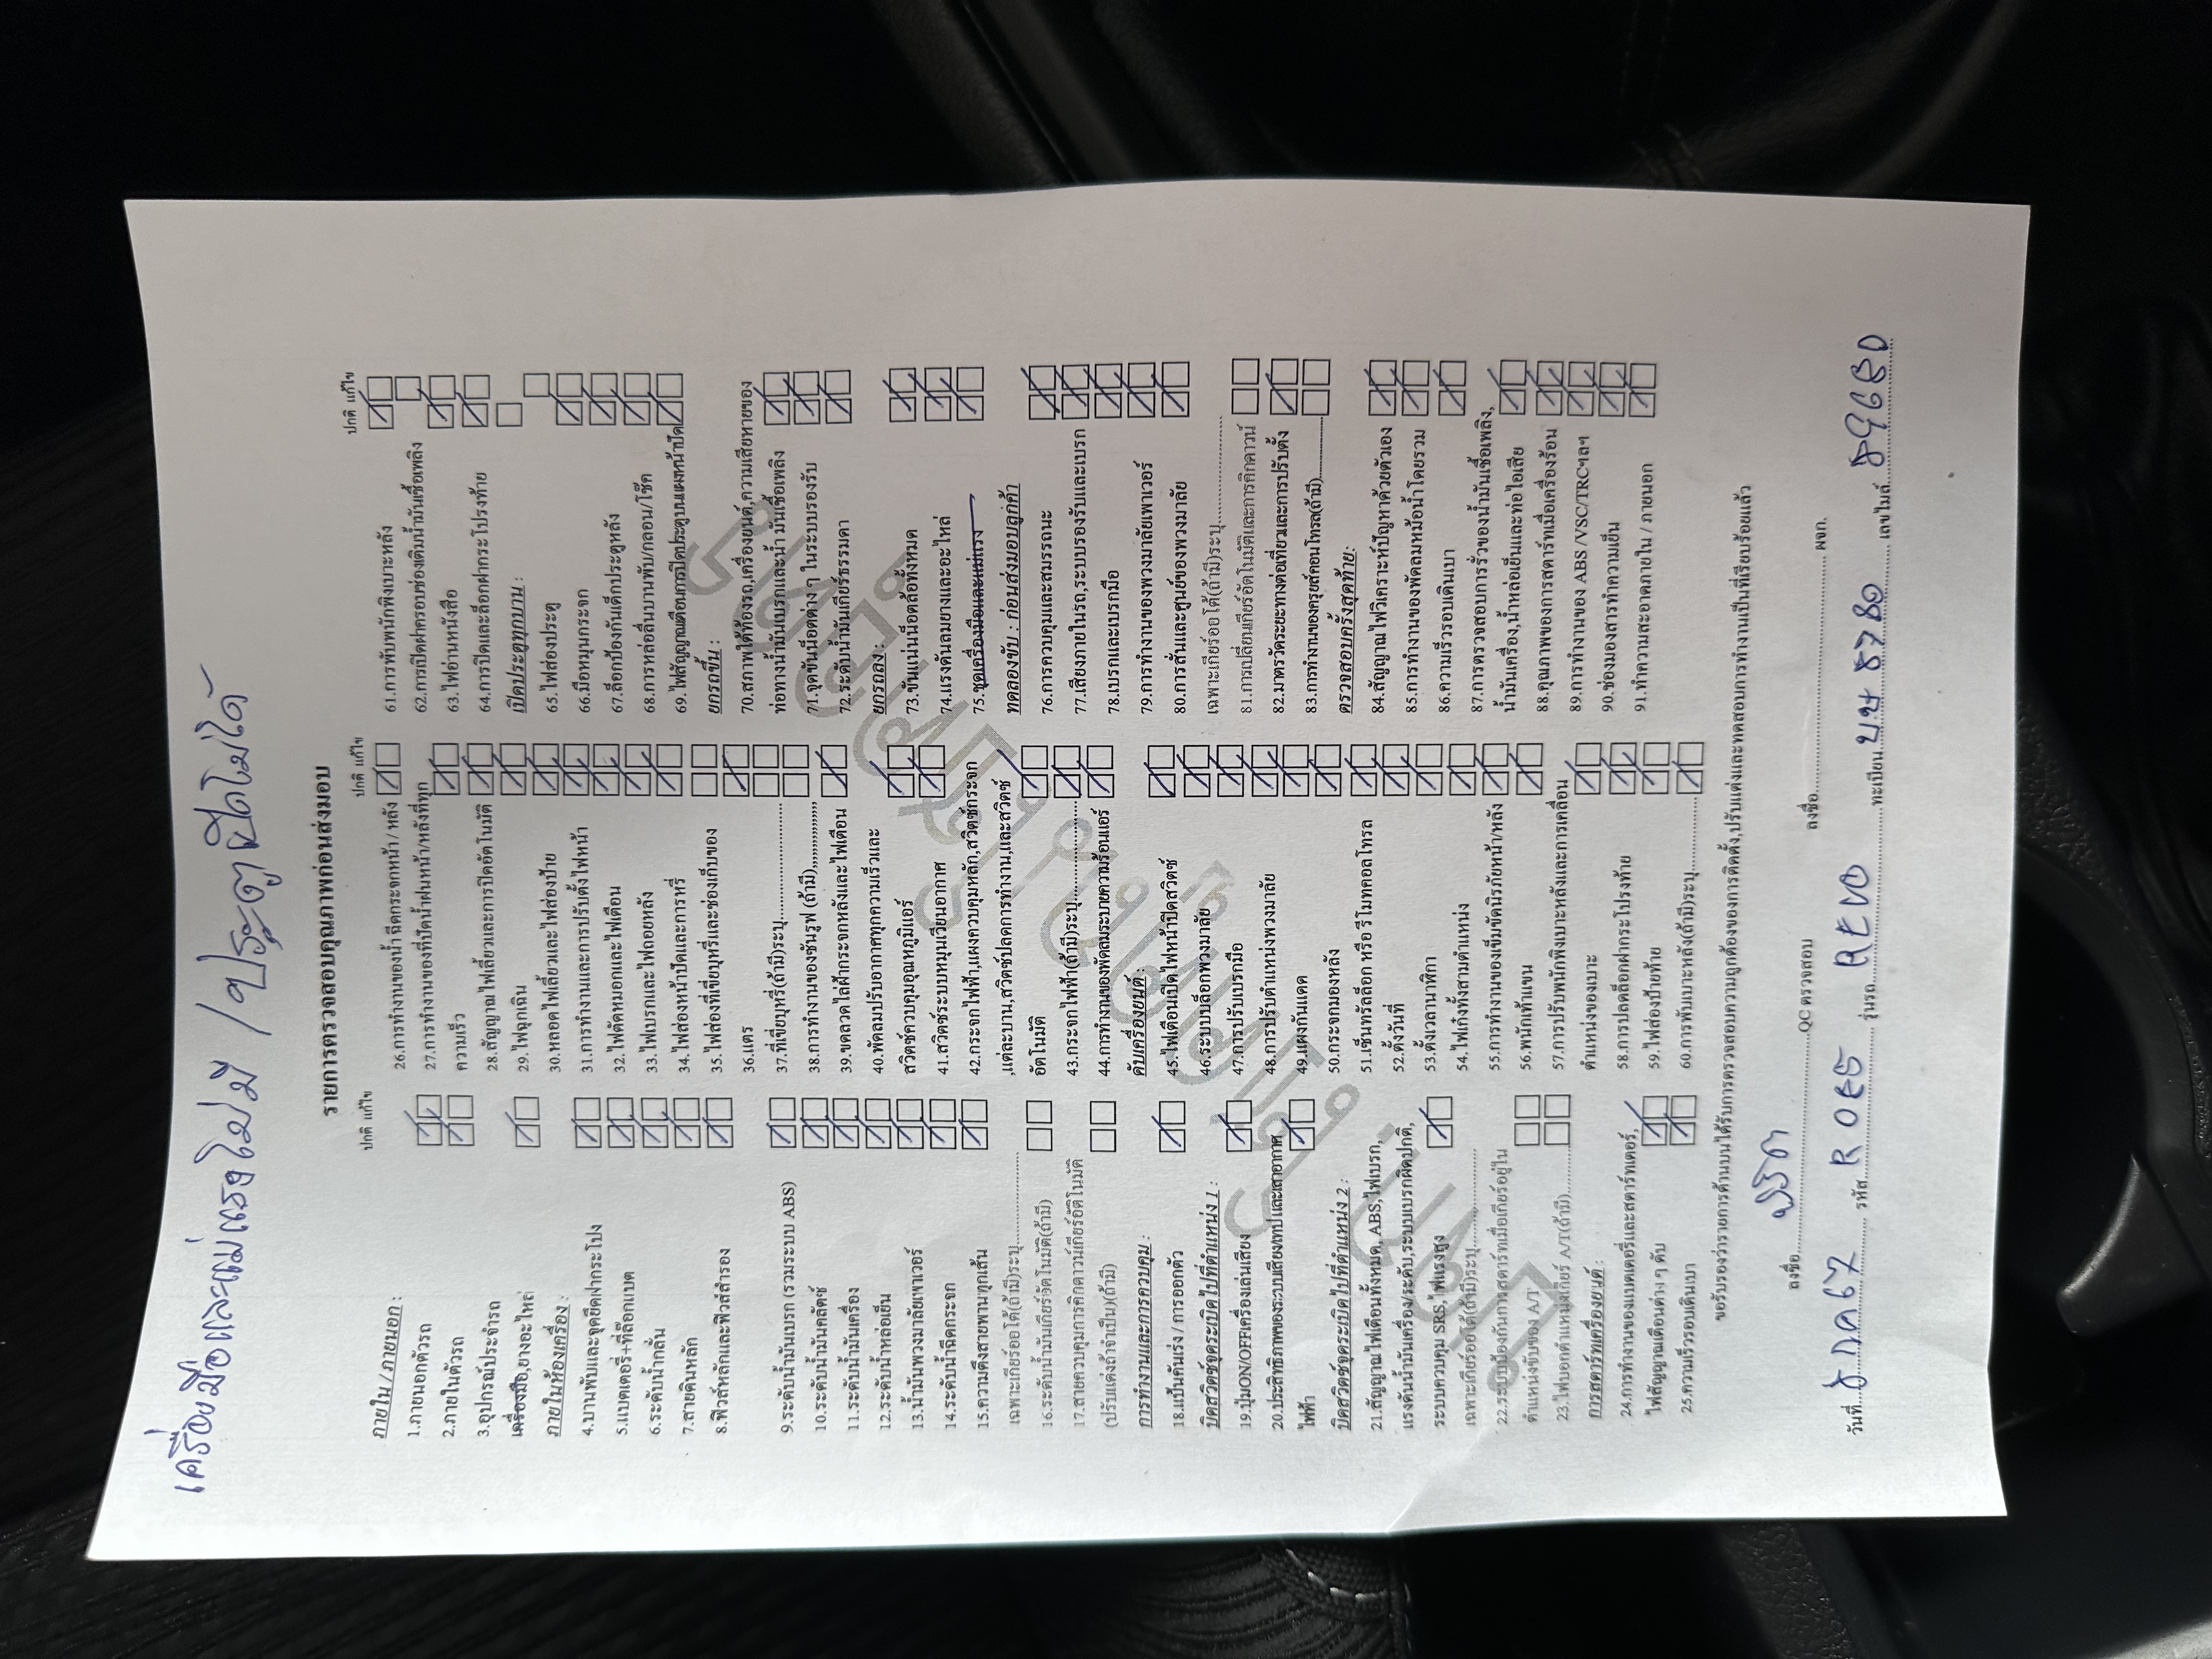 เครื่องมือและแม่แรงไม่มี / ประตูเปิดไม่ได้
รายการตรวจสอบคุณภาพก่อนส่งมอบ
ปกติ แก้ไข
ภายใน / ภายนอก :
1.ภายนอกตัวรถ
2.ภายในตัวรถ
3.อุปกรณ์ประจำรถ
เครื่องมือ,ยางอะไหล่
ภายในห้องเครื่อง :
4.บานพับและจุดยึดฝากระโปง
5.แบตเตอรี่+ที่ล็อกแบต
6.ระดับน้ำกลั่น
7.สายดินหลัก
8.ฟิวส์หลักและฟิวส์สำรอง
9.ระดับน้ำมันเบรก (รวมระบบ ABS)
10.ระดับน้ำมันคลัตช์
11.ระดับน้ำมันเครื่อง
12.ระดับน้ำหล่อเย็น
13.น้ำมันพวงมาลัยเพาเวอร์
14.ระดับน้ำฉีดกระจก
15.ความตึงสายพานทุกเส้น
เฉพาะเกียร์ออโต้(ถ้ามี)ระบุ
16.ระดับน้ำมันเกียร์อัตโนมัติ(ถ้ามี)
17.สายควบคุมการคิกดาวน์เกียร์อัติโนมัติ
(ปรับแต่งถ้าจำเป็น)(ถ้ามี)
การทำงานและการควบคุม :
18.แป้นคันเร่ง / การออกตัว
บิดสวิตซ์จุดระเบิดไปที่ตำแหน่ง 1 :
19.ปุ่มON/OFFเครื่องเล่นเสียง
20.ประสิทธิภาพของระบบเสียง/เทป และเสาอากาศ
ไฟฟ้า
บิดสวิตซ์จุดระเบิดไปที่ตำแหน่ง 2 :
21.สัญญาณไฟเตือนทั้งหมด, ABS,ไฟเบรก,
แรงดันน้ำมันเครื่อง/ระดับ,ระบบเบรกผิดปกติ,
ระบบควบคุม SRS,ไฟแรงสูง
เฉพาะเกียร์ออโต้(ถ้ามี)ระบุ
22.ระบบป้องกันการสตาร์ทเมื่อเกียร์อยู่ใน
ตำแหน่งขับของ A/T
23.ไฟบอกตำแหน่งเกียร์ A/T(ถ้ามี)
การสตาร์ทเครื่องยนต์ :
24.การทำงานของแบตเตอรี่และสตาร์ทเตอร์,
ไฟสัญญาณเตือนต่าง ๆ ดับ
25.ความเร็วรอบเดินเบา
ปกติ แก้ไข
26.การทำงานของน้ำ ฉีดกระจกหน้า / หลัง
27.การทำงานของที่ปัดน้ำฝนหน้า/หลังที่ทุก
ความเร็ว
28.สัญญาณไฟเลี้ยวและการปิดอัตโนมัติ
29.ไฟฉุกเฉิน
30.หลอดไฟเลี้ยวและไฟส่องป้าย
31.การทำงานและการปรับตั้งไฟหน้า
32.ไฟตัดหมอกและไฟเตือน
33.ไฟเบรกและไฟถอยหลัง
34.ไฟส่องหน้าปัดและการหรี่
35.ไฟส่องที่เขี่ยบุหรี่และช่องเก็บของ
36.แตร
37.ที่เขี่ยบุหรี่(ถ้ามี)ระบุ
38.การทำงานของซันรูฟ (ถ้ามี)
39.ขดลวดไล่ฝ้ากระจกหลังและไฟเตือน
40.พัดลมปรับอากาศทุกความเร็วและ
สวิตซ์ควบคุมอุณหภูมิแอร์
41.สวิตช์ระบบหมุนเวียนอากาศ
42.กระจกไฟฟ้า,แผงควบคุมหลัก,สวิตซ์กระจก
,แต่ละบาน,สวิตซ์ปลดการทำงาน,และสวิตซ์
อัตโนมัติ
43.กระจกไฟฟ้า(ถ้ามี)ระบุ
44.การทำงานของพัดลมระบายความร้อนแอร์
ดับเครื่องยนต์ :
45.ไฟเตือนเปิดไฟหน้าปิดสวิตซ์
46.ระบบบล็อกพวงมาลัย
47.การปรับเบรกมือ
48.การปรับตำแหน่งพวงมาลัย
49.แผงกันแดด
50.กระจกมองหลัง
51.เซ็นทรัลล็อก หรือ รีโมทคอลโทรล
52.ตั้งวันที่
53.ตั้งเวลานาฬิกา
54.ไฟเก๋งทั้งสามตำแหน่ง
55.การทำงานของเข็มขัดนิรภัยหน้า/หลัง
56.พนักเท้าแขน
57.การปรับพนักพิงเบาะหลังและการเคลื่อน
ตำแหน่งของเบาะ
58.การปลดล็อกฝากระโปรงท้าย
59.ไฟส่องป้ายท้าย
60.การพับเบาะหลัง(ถ้ามี)ระบุ
ปกติ แก้ไข
61.การพับพนักพิงเบาะหลัง
62.การปิดฝาครอบช่องเติมน้ำมันเชื้อเพลิง
63.ไฟอ่านหนังสือ
64.การปิดและล็อกฝากระโปรงท้าย
เปิดประตูทุกบาน :
65.ไฟส่องประตู
66.มือหมุนกระจก
67.ล็อกป้องกันเด็กประตูหลัง
68.การหล่อลื่นบานพับ/กลอน/โช๊ค
69.ไฟสัญญาณเตือนการปิดประตูบนแผงหน้าปัด
ยกรถขึ้น :
70.สภาพใต้ท้องรถ,เครื่องยนต์,ความเสียหายของ
ท่อทางน้ำมันเบรกและน้ำ มันเชื้อเพลิง
71.จุดขันน็อตต่าง ๆ ในระบบรองรับ
72.ระดับน้ำมันเกียร์ธรรมดา
ยกรถลง :
73.ขันแน่นน็อตล้อทั้งหมด
74.แรงดันลมยางและอะไหล่
75.ชุดเครื่องมือและแม่แรง
ทดลองขับ : ก่อนส่งมอบลูกค้า
76.การควบคุมและสมรรถนะ
77.เสียงภายในรถ,ระบบรองรับและเบรก
78.เบรกและเบรกมือ
79.การทำงานของพวงมาลัยเพาเวอร์
80.การสั่นและศูนย์ของพวงมาลัย
เฉพาะเกียร์ออโต้(ถ้ามี)ระบุ
81.การเปลี่ยนเกียร์อัตโนมัติและการคิกดาวน์
82.มาตรวัดระยะทางต่อเที่ยวและการปรับตั้ง
83.การทำงานของครุยส์คอนโทรล(ถ้ามี)
ตรวจสอบครั้งสุดท้าย:
84.สัญญาณไฟวิเคราะห์ปัญหาด้วยตัวเอง
85.การทำงานของพัดลมหม้อน้ำโดยรวม
86.ความเร็วรอบเดินเบา
87.การตรวจสอบการรั่วของน้ำมันเชื้อเพลิง,
น้ำมันเครื่อง,น้ำหล่อเย็นและท่อไอเสีย
88.คุณภาพของการสตาร์ทเมื่อเครื่องร้อน
89.การทำงานของ ABS /VSC/TRCฯลฯ
90.ช่องมองสารทำความเย็น
91.ทำความสะอาดภายใน / ภายนอก
ขอรับรองว่ารายการด้านบนได้รับการตรวจสอบความถูกต้องของการติดตั้ง,ปรับแต่งและทดสอบการทำงานเป็นที่เรียบร้อยแล้ว
ลงชื่อ QC ตรวจสอบ ลงชื่อ ผจก.
วันที่ 8 กค 67 รหัส R085 รุ่นรถ REVO ทะเบียน บษ 8780 เลขไมล์ 89680